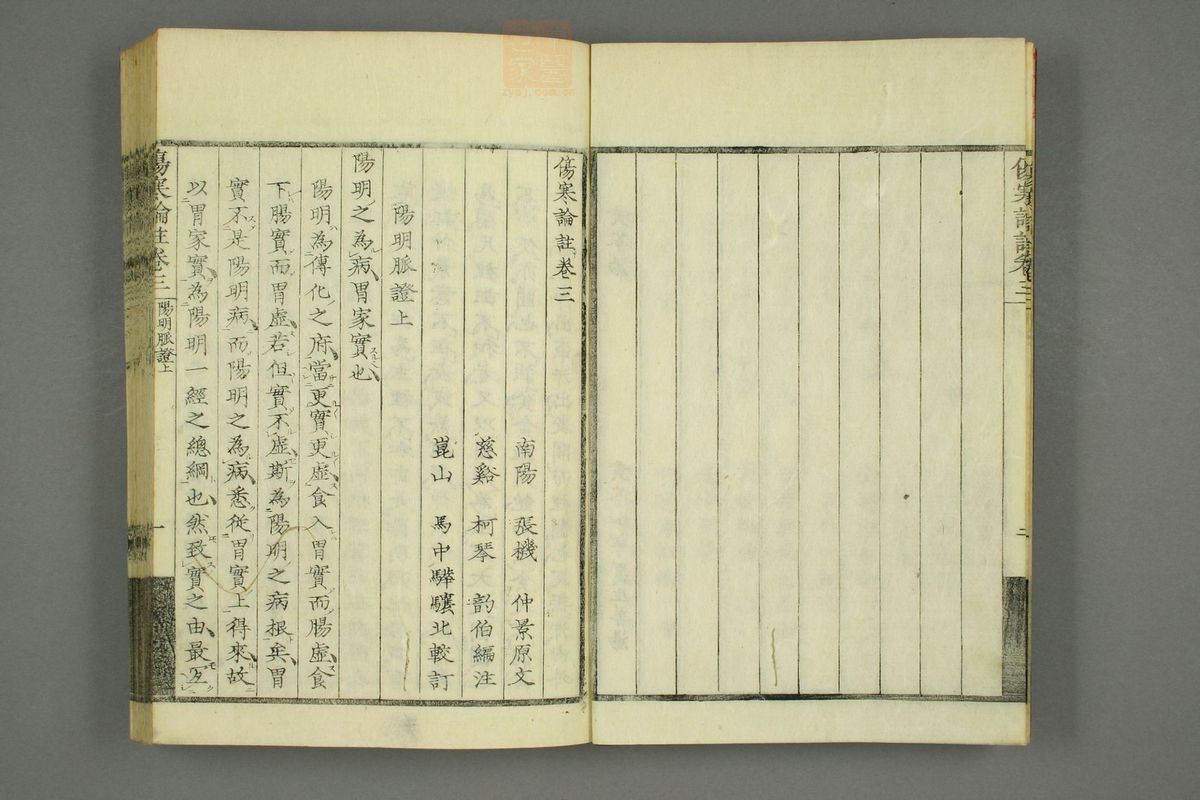 傷寒論註卷三
二
傷寒論註卷三
南陽 張機 仲景原文
慈谿 柯琴 韵伯編注
崑山 馬中驊驤北較訂
陽明脈證上
陽明之為病胃家實也
陽明為傳化之府當更實更虛食入胃實而腸虛食
下腸實而胃虛若但實不虛斯為陽明之病根矣胃
實不是陽明病而陽明之為病悉從胃實上得來故
以胃家實為陽明一經之總綱也然致實之由最宜
傷寒論註卷三
陽明脈證上
一
zysj.com.cn